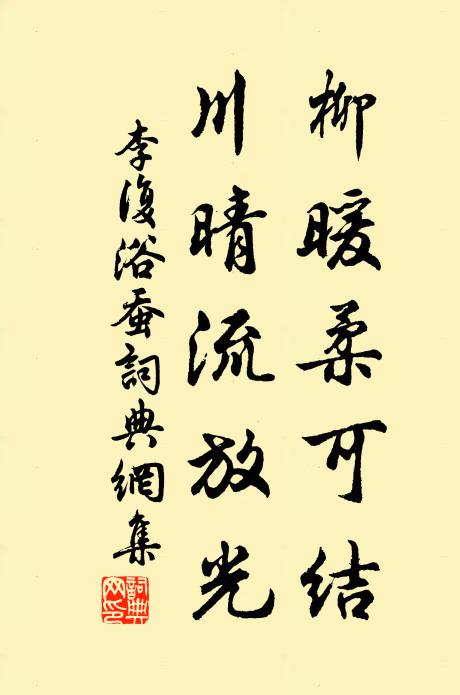 柳暖柔可结
川晴流放光
李復浴蚕詞典網集
詞典网印